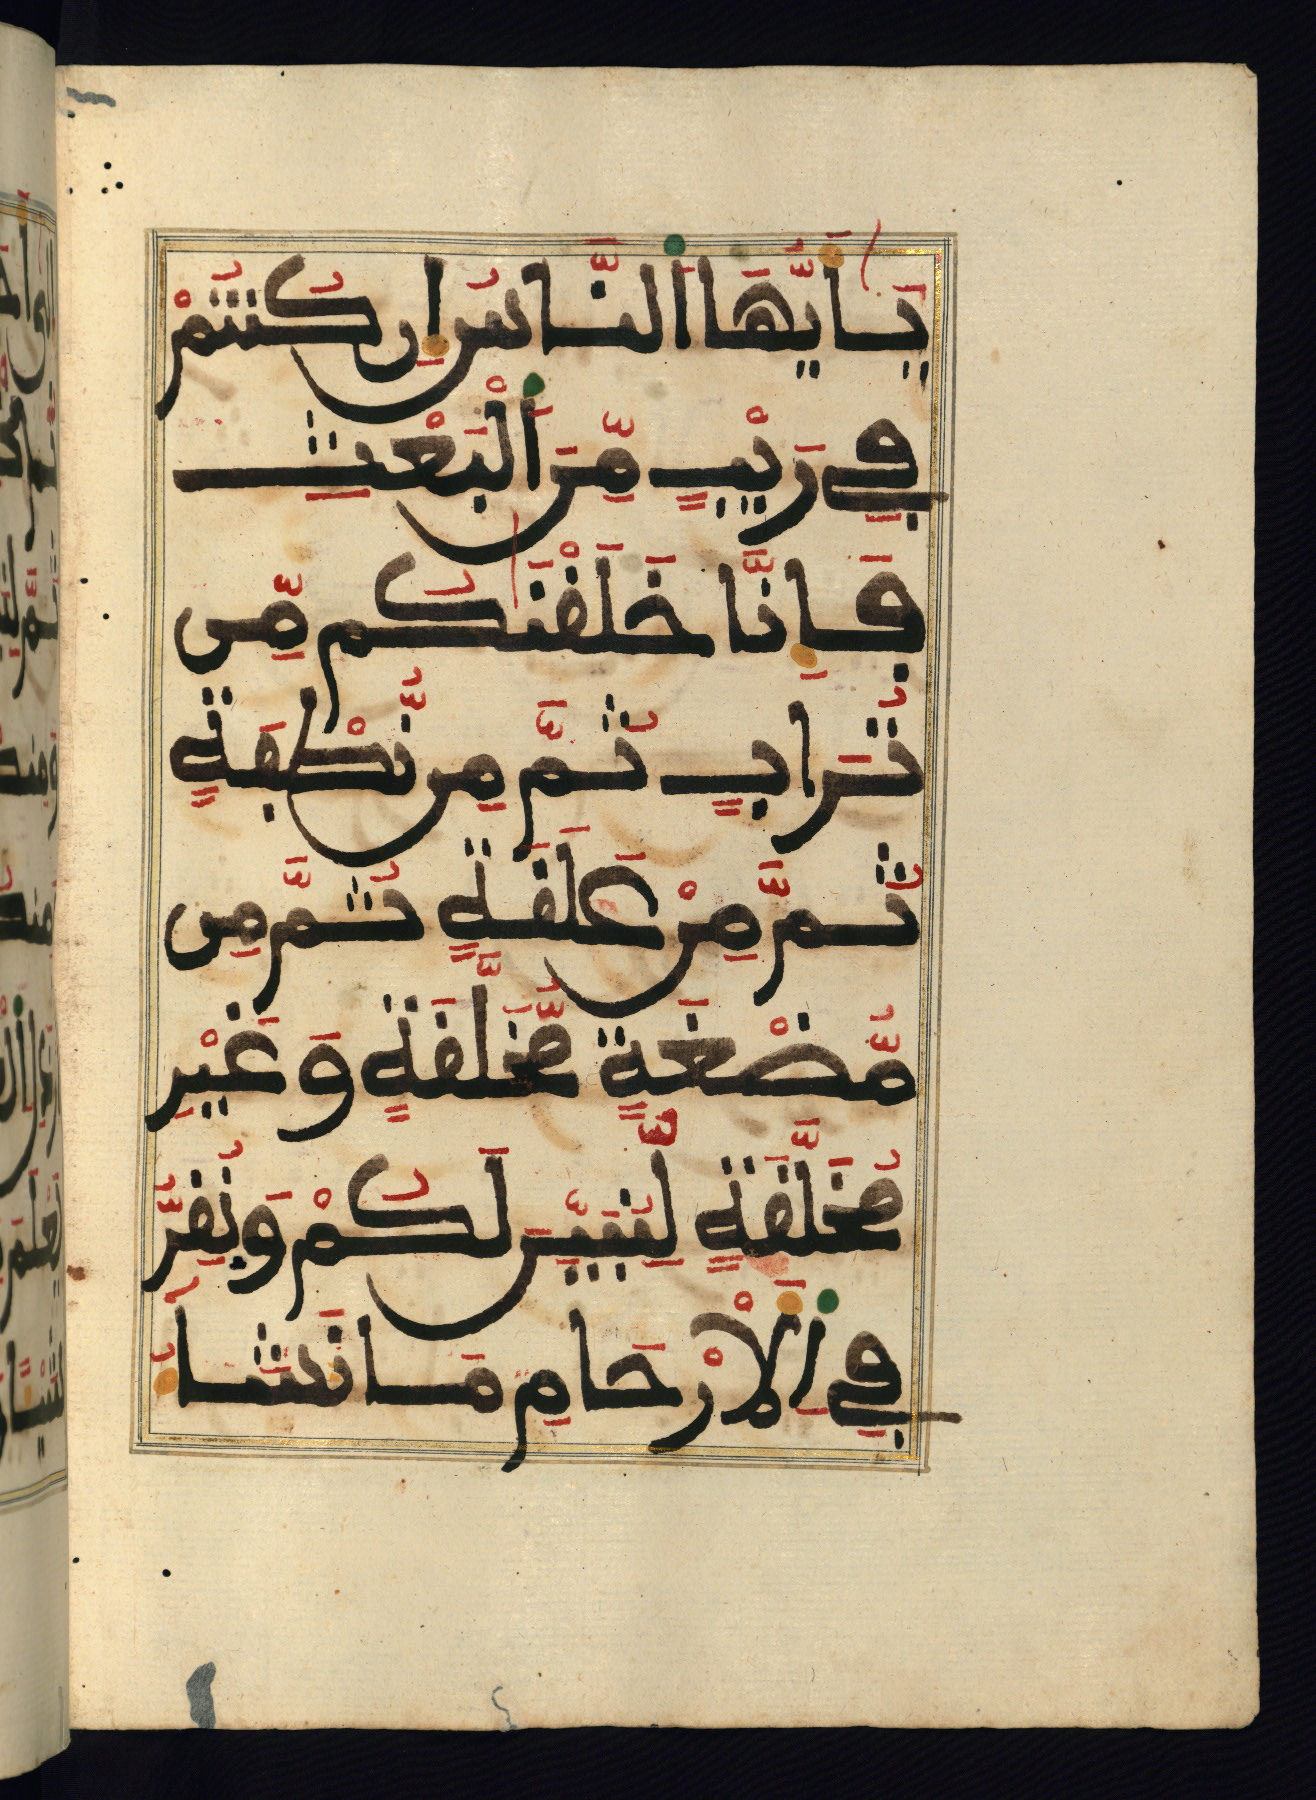 يَٰأَيُّهَا اَ۬لنَّاسُ إِن كُنتُمْ
فِي رَيْبٍ مِّنَ اَ۬لْبَعْثِ
فَإِنَّا خَلَقْنَٰكُم مِّن
تُرَابٍ ثُمَّ مِن نُّطْفَةٍ
ثُمَّ مِنْ عَلَقَةٍ ثُمَّ مِن
مُّضْغَةٍ مُّخَلَّقَةٍ وَغَيْرِ
مُخَلَّقَةٍ لِّنُبَيِّنَ لَكُمْ وَنُقِرُّ
فِي اِ۬لْأَرْحَامِ مَا نَشَاءُ